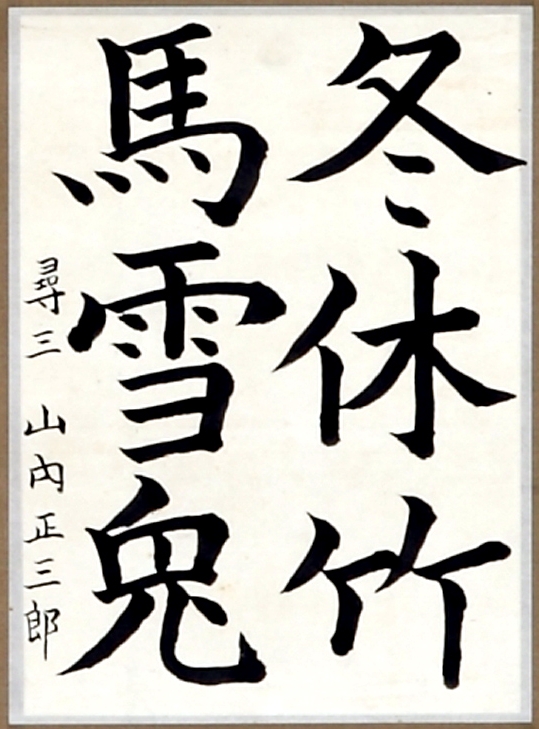 冬休竹
馬雪兎
尋三 山内正三郎